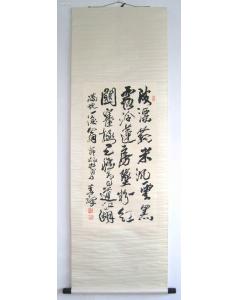 波漂菰米沉雲黑
露冷蓮房墜粉紅
關塞極天惟鳥道江湖
滿地一漁翁